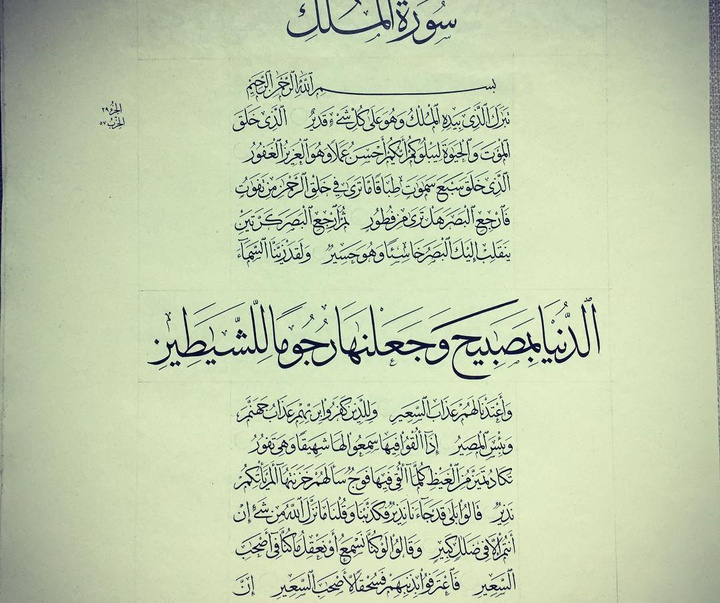 سُورَةُ الْمُلْكِ
بِسْمِ اللَّهِ الرَّحْمَٰنِ الرَّحِيمِ
الجزء ٢٩
الحزب ٥٧
تَبَٰرَكَ الَّذِي بِيَدِهِ الْمُلْكُ وَهُوَ عَلَىٰ كُلِّ شَيْءٍ قَدِيرٌ الَّذِي خَلَقَ
الْمَوْتَ وَالْحَيَوٰةَ لِيَبْلُوَكُمْ أَيُّكُمْ أَحْسَنُ عَمَلًا وَهُوَ الْعَزِيزُ الْغَفُورُ
الَّذِي خَلَقَ سَبْعَ سَمَٰوَٰتٍ طِبَاقًا مَا تَرَىٰ فِي خَلْقِ الرَّحْمَٰنِ مِنْ تَفَٰوُتٍ
فَارْجِعِ الْبَصَرَ هَلْ تَرَىٰ مِنْ فُطُورٍ ثُمَّ ارْجِعِ الْبَصَرَ كَرَّتَيْنِ
يَنْقَلِبْ إِلَيْكَ الْبَصَرُ خَاسِئًا وَهُوَ حَسِيرٌ وَلَقَدْ زَيَّنَّا السَّمَاءَ
الدُّنْيَا بِمَصَٰبِيحَ وَجَعَلْنَٰهَا رُجُومًا لِلشَّيَٰطِينِ
وَأَعْتَدْنَا لَهُمْ عَذَابَ السَّعِيرِ وَلِلَّذِينَ كَفَرُوا بِرَبِّهِمْ عَذَابُ جَهَنَّمَ
وَبِئْسَ الْمَصِيرُ إِذَا أُلْقُوا فِيهَا سَمِعُوا لَهَا شَهِيقًا وَهِيَ تَفُورُ
تَكَادُ تَمَيَّزُ مِنَ الْغَيْظِ كُلَّمَا أُلْقِيَ فِيهَا فَوْجٌ سَأَلَهُمْ خَزَنَتُهَا أَلَمْ يَأْتِكُمْ
نَذِيرٌ قَالُوا بَلَىٰ قَدْ جَاءَنَا نَذِيرٌ فَكَذَّبْنَا وَقُلْنَا مَا نَزَّلَ اللَّهُ مِنْ شَيْءٍ إِنْ
أَنْتُمْ إِلَّا فِي ضَلَٰلٍ كَبِيرٍ وَقَالُوا لَوْ كُنَّا نَسْمَعُ أَوْ نَعْقِلُ مَا كُنَّا فِي أَصْحَٰبِ
السَّعِيرِ فَاعْتَرَفُوا بِذَنْبِهِمْ فَسُحْقًا لِأَصْحَٰبِ السَّعِيرِ إِنَّ